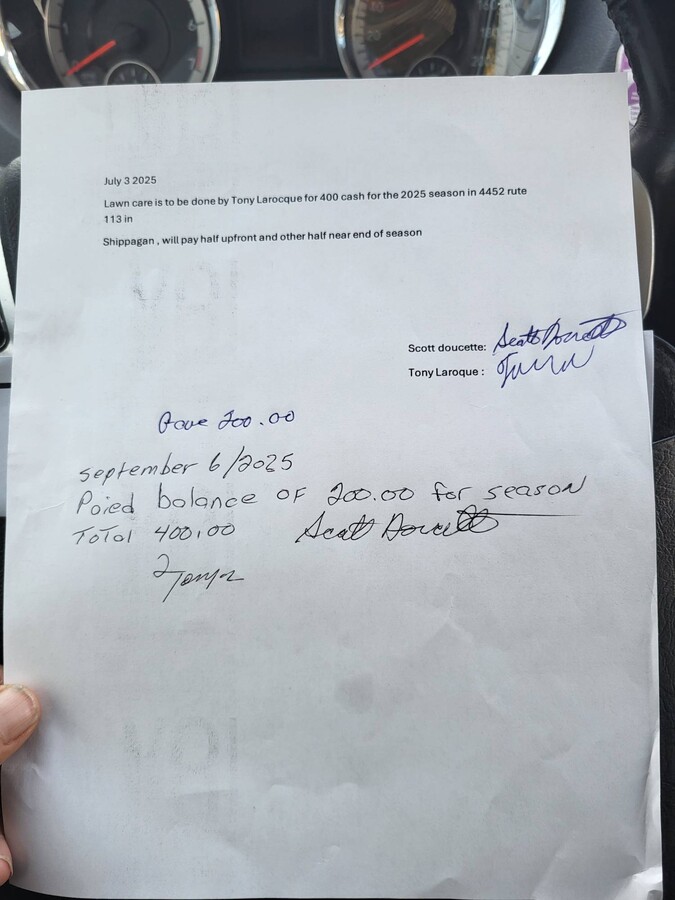 July 3 2025
Lawn care is to be done by Tony Larocque for 400 cash for the 2025 season in 4452 rute
113 in
Shippagan , will pay half upfront and other half near end of season
Scott doucette: Scott Doucette
Tony Laroque :
Gave 200.00
september 6/2025
Paied balance OF 200.00 for season
TOTOl 400.00 Scott Doucette